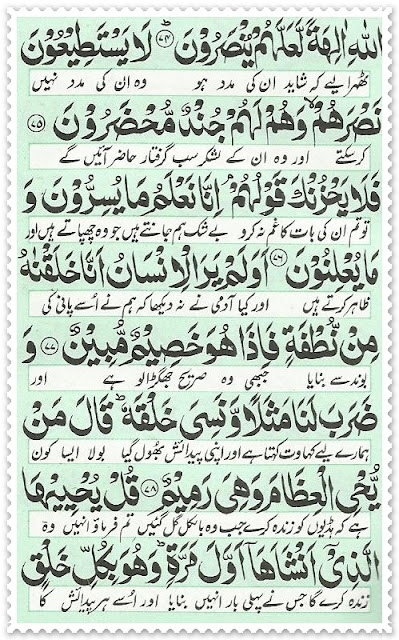 اللّٰهِ اٰلِهَةً لَّعَلَّهُمْ يُنْصَرُوْنَ ۟ؕ ﴿۷۴﴾ لَا يَسْتَطِيْعُوْنَ
ٹھہرا لیے کہ شاید ان کی مدد ہو وہ ان کی مدد نہیں
نَصْرَهُمْ ۙ وَهُمْ لَهُمْ جُنْدٌ مُّحْضَرُوْنَ ﴿۷۵﴾
کرسکتے اور وہ ان کے لشکر سب گرفتار حاضر آئیں گے
فَلَا يَحْزُنْكَ قَوْلُهُمْ ۘ اِنَّا نَعْلَمُ مَا يُسِرُّوْنَ وَ
تو تم ان کی بات کا غم نہ کرو بے شک ہم جانتے ہیں جو وہ چھپاتے ہیں اور
مَا يُعْلِنُوْنَ ﴿۷۶﴾ اَوَلَمْ يَرَ الْاِنْسَانُ اَنَّا خَلَقْنٰهُ
ظاہر کرتے ہیں اور کیا آدمی نے نہ دیکھا کہ ہم نے اُسے پانی کی
مِنْ نُّطْفَةٍ فَاِذَا هُوَ خَصِيْمٌ مُّبِيْنٌ ﴿۷۷﴾ وَ
بوند سے بنایا جبھی وہ صریح جھگڑالو ہے اور
ضَرَبَ لَنَا مَثَلًا وَّنَسِيَ خَلْقَهٗ ؕ قَالَ مَنْ
ہمارے لیے کہاوت کہتا ہے اور اپنی پیدائش بھول گیا بولا ایسا کون
يُّحْيِ الْعِظَامَ وَهِيَ رَمِيْمٌ ﴿۷۸﴾ قُلْ يُحْيِيْهَا
ہے کہ ہڈیوں کو زندہ کرے جب وہ بالکل گل گئیں تم فرماؤ انہیں وہ
الَّذِيْٓ اَنْشَاَهَآ اَوَّلَ مَرَّةٍ ؕ وَهُوَ بِكُلِّ خَلْقٍ
زندہ کرے گا جس نے پہلی بار انہیں بنایا اور اُسے ہر پیدائش کا